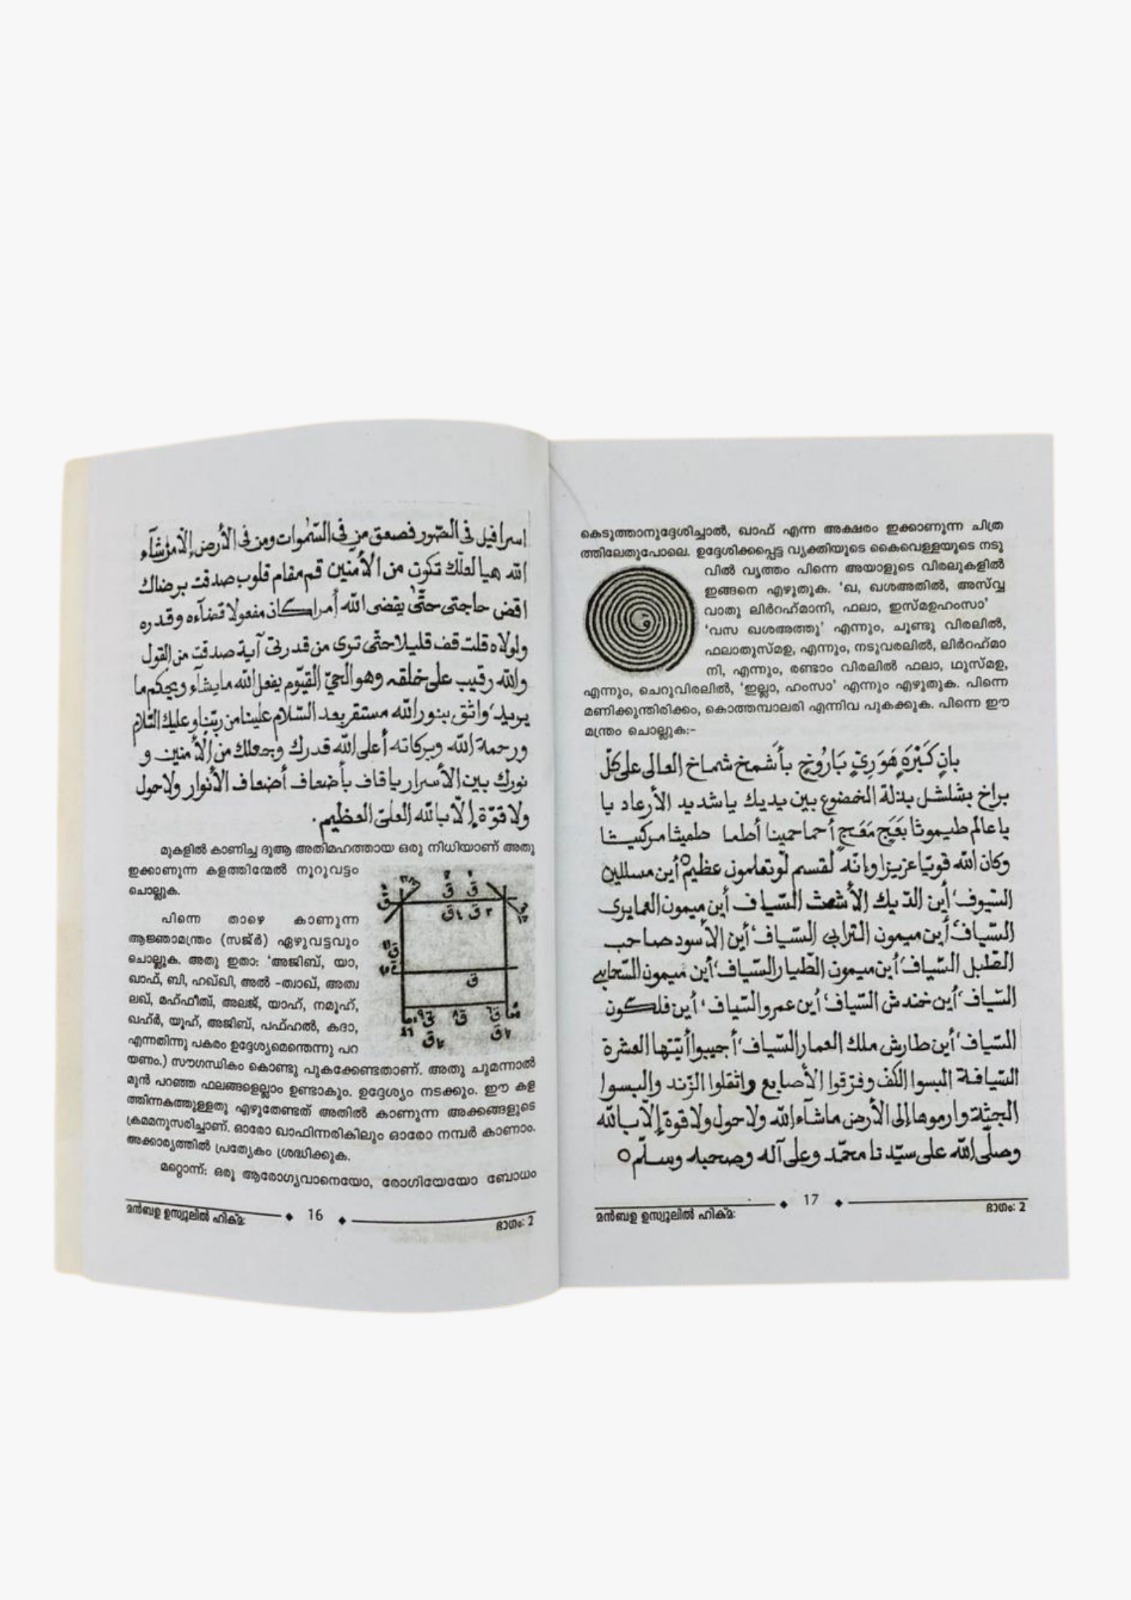 اسرافيل فى الصّور فصعق من فى السّمٰوات ومن فى الأرض إلا من شآء
الله هيا لعلّك تكون من الأمنين قم مقام قلوب صدقت برضاك
اقض حاجتى حتّى يقضى الله أمرا كان مفعولا قضآءه وقدره
ولولاه قلت قف قليلا حتّى ترى من قدرتى آية صدقت من القول
والله رقيب على خلقه وهو الحيّ القيّوم يفعل الله ما يشآء ويحكم ما
يريد واثق بنور الله مستقر بعد السّلام علينا من ربّنا وعليك السّلام
ورحمة الله وبركاته أعلى الله قدرك وجعلك من الأمنين و
نورك بين الأسرار يا قاف بأضعاف أضعاف الأنوار ولا حول
ولا قوّة إلّا بالله العليّ العظيم.
മുകളിൽ കാണിച്ച ദുആ അതിമഹത്തായ ഒരു നിധിയാണ് അതു
ഇക്കാണുന്ന കളത്തിന്മേൽ നൂറുവട്ടം
ചൊല്ലുക.
പിന്നെ താഴെ കാണുന്ന
ആജ്ഞാമന്ത്രം (സജ്ർ) ഏഴുവട്ടവും
ചൊല്ലുക. അതു ഇതാ: 'അജിബ്, യാ,
ഖാഫ്, ബി, ഹഖ്ഖി, അൽ -ത്വാഖ്, അത്വ
ലഖ്, മഹ്ഫീത്, അലജ്, യാഹ്, നമൂഹ്,
ഖഹ്ർ, യൂഹ്, അജിബ്, പഫ്ഹൽ, കദാ,
എന്നതിന്നു പകരം ഉദ്ദേശ്യമെന്തെന്നു പറ
യണം.) സൗഗന്ധികം കൊണ്ടു പുകക്കേണ്ടതാണ്. അതു ചുമന്നാൽ
മുൻ പറഞ്ഞ ഫലങ്ങളെല്ലാം ഉണ്ടാകും. ഉദ്ദേശ്യം നടക്കും. ഈ കള
ത്തിന്നകത്തുള്ളതു എഴുതേണ്ടത് അതിൽ കാണുന്ന അക്കങ്ങളുടെ
ക്രമമനുസരിച്ചാണ്. ഓരോ ഖാഫിന്നരികിലും ഓരോ നമ്പർ കാണാം.
അക്കാര്യത്തിൽ പ്രത്യേകം ശ്രദ്ധിക്കുക.
മറ്റൊന്ന്: ഒരു ആരോഗ്യവാനെയോ, രോഗിയേയോ ബോധം
മൻബഉ ഉസ്വൂലിൽ ഹിക്മ: 16 ഭാഗം: 2
കെടുത്താനുദ്ദേശിച്ചാൽ, ഖാഫ് എന്ന അക്ഷരം ഇക്കാണുന്ന ചിത്ര
ത്തിലേതുപോലെ. ഉദ്ദേശിക്കപ്പെട്ട വ്യക്തിയുടെ കൈവെള്ളയുടെ നടു
വിൽ വൃത്തം പിന്നെ അയാളുടെ വിരലുകളിൽ
ഇങ്ങനെ എഴുതുക. 'ഖ, ഖശഅതിൽ, അസ്വ്വ
വാതു ലിർറഹ്മാനി, ഫലാ, ഇസ്മഉഹംസാ'
'വസ ഖശഅത്തു' എന്നും, ചൂണ്ടു വിരലിൽ,
ഫലാതുസ്മഉ, എന്നും, നടുവരലിൽ, ലിർറഹ്മാ
നി, എന്നും, രണ്ടാം വിരലിൽ ഫലാ, ഥുസ്മഉ,
എന്നും, ചെറുവിരലിൽ, 'ഇല്ലാ, ഹംസാ' എന്നും എഴുതുക. പിന്നെ
മണിക്കുന്തിരിക്കം, കൊത്തമ്പാലരി എന്നിവ പുകക്കുക. പിന്നെ ഈ
മന്ത്രം ചൊല്ലുക:-
بأشمخ شماخ العالى على كلّ
براخ بشلشل بذلة الخضوع بين يديك يا شديد الأرعاد يا
يا عالم طيموثا أحما حمينا أطعا طفيثا
وكان الله قويّا عزيزا وإنّه لقسم لو تعلمون عظيم أين مسللين
السّيوف أين الدّيك الأشعث السّياف أين ميمون الغمايرى
السّياف أين ميمون الترابى السّياف أين الأسود صاحب
الطبل السّياف أين ميمون الطّيار السّياف أين ميمون السّحابى
السّياف أين خندش السّياف أين عمرو السّياف أين فلكون
السّياف أين طارش ملك العمار السّياف أجيبوا أيّتها العشرة
السّيافة البسوا الكفّ وفرّقوا الأصابع واثقلوا الزّند والبسوا
الجثّة وارموها إلى الأرض ما شاء الله ولا حول ولا قوة إلّا بالله
وصلّى الله على سيّدنا محمّد وعلى آله وصحبه وسلّم
മൻബഉ ഉസ്വൂലിൽ ഹിക്മ: 17 ഭാഗം: 2